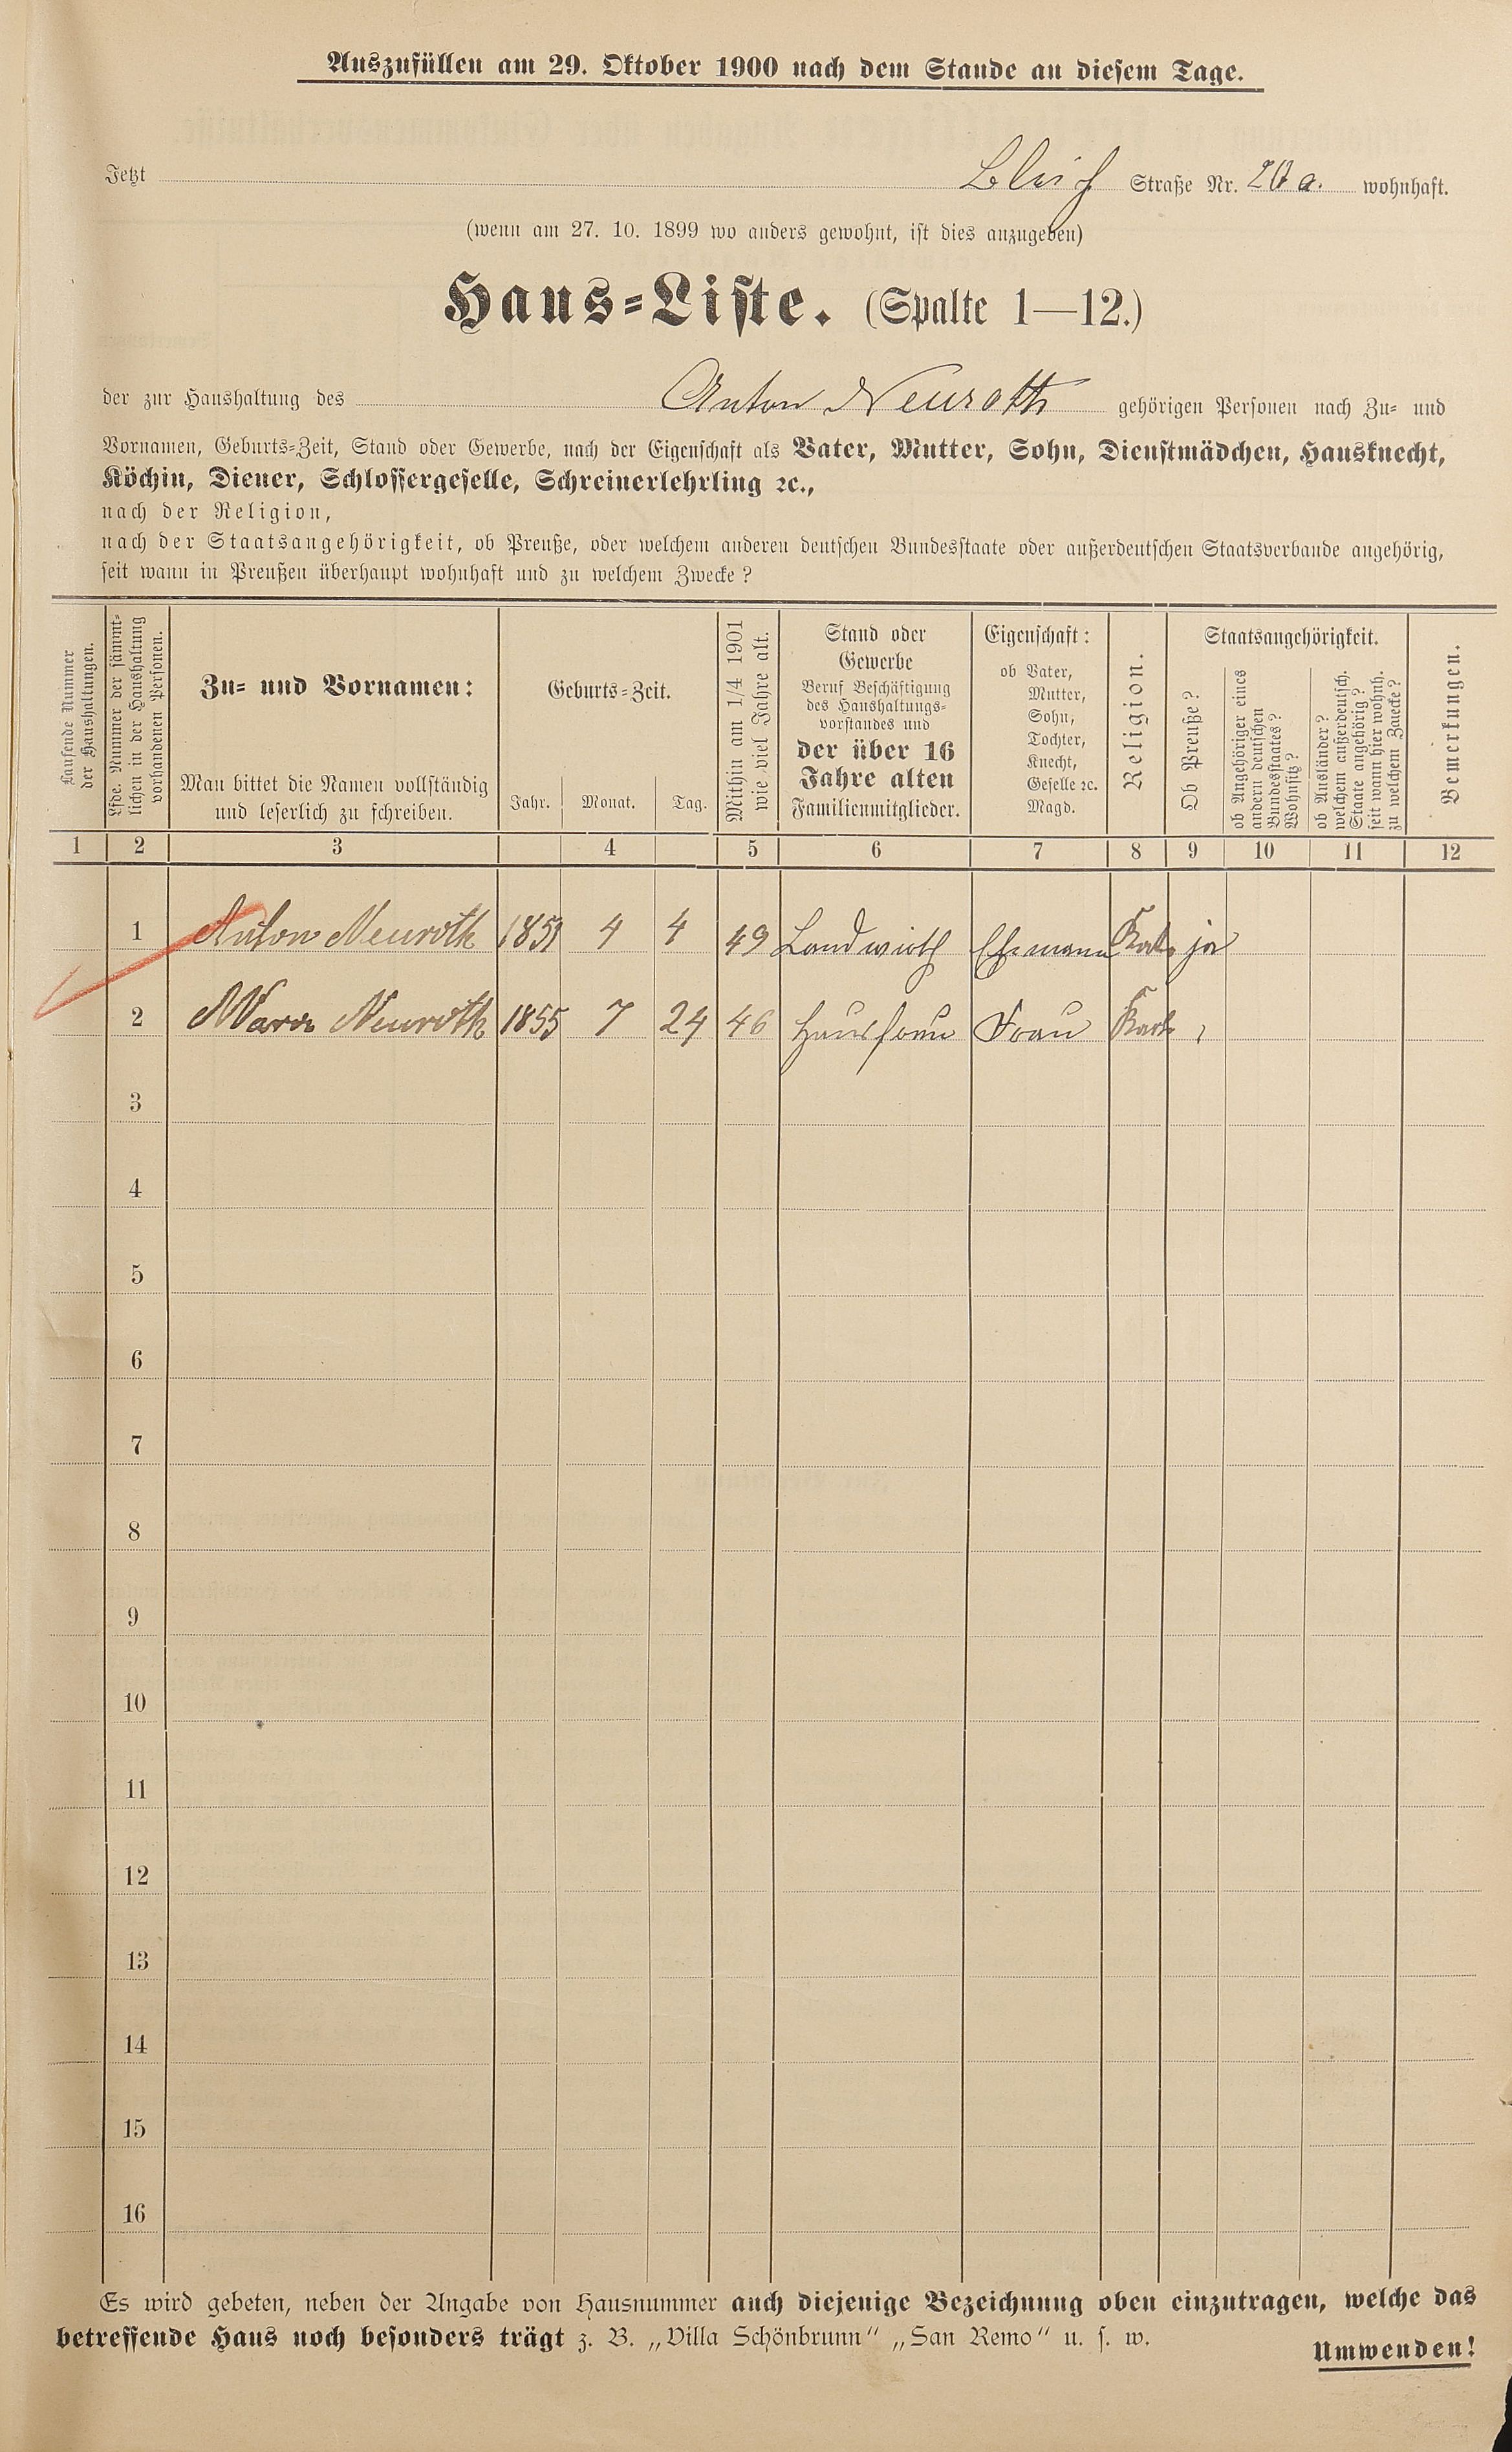 Auszufüllen am 29. Oktober 1900 nach dem Stande an diesem Tage.
Jetzt Straße Nr. 20 a. wohnhaft.
(wenn am 27. 10. 1899 wo anders gewohnt, ist dies anzugeben)
Haus-Liste. (Spalte 1—12.)
der zur Haushaltung des Anton Neuroth gehörigen Personen nach Zu- und
Vornamen, Geburts-Zeit, Stand oder Gewerbe, nach der Eigenschaft als Vater, Mutter, Sohn, Dienstmädchen, Hausknecht,
Köchin, Diener, Schlossergeselle, Schreinerlehrling ꝛc.,
nach der Religion,
nach der Staatsangehörigkeit, ob Preuße, oder welchem anderen deutschen Bundesstaate oder außerdeutschen Staatsverbande angehörig,
seit wann in Preußen überhaupt wohnhaft und zu welchem Zwecke?
Laufende Nummer
der Haushaltungen.
Lfde. Nummer der sämmt-
lichen in der Haushaltung
vorhandenen Personen.
Zu- und Vornamen:
Man bittet die Namen vollständig
und leserlich zu schreiben.
Geburts-Zeit.
Jahr. Monat. Tag.
Mithin am 1/4 1901
wie viel Jahre alt.
Stand oder
Gewerbe
Beruf Beschäftigung
des Haushaltungs-
vorstandes und
der über 16
Jahre alten
Familienmitglieder.
Eigenschaft:
ob Vater,
Mutter,
Sohn,
Tochter,
Knecht,
Geselle ꝛc.
Magd.
Religion.
Staatsangehörigkeit.
Ob Preuße?
ob Angehöriger eines
andern deutschen
Bundesstaates?
Wohnsitz?
ob Ausländer?
welchem außerdeutsch.
Staate angehörig?
seit wann hier wohnh.
zu welchem Zwecke?
Bemerkungen.
1 2 3 4 5 6 7 8 9 10 11 12
1 Anton Neuroth 1851 4 4 49 Landwirth Ehemann Kath ja
2 Neuroth 1855 7 24 46 Hausfrau Frau Kath "
3
4
5
6
7
8
9
10
11
12
13
14
15
16
Es wird gebeten, neben der Angabe von Hausnummer auch diejenige Bezeichnung oben einzutragen, welche das
betreffende Haus noch besonders trägt z. B. „Villa Schönbrunn" „San Remo" u. s. w.
Umwenden!